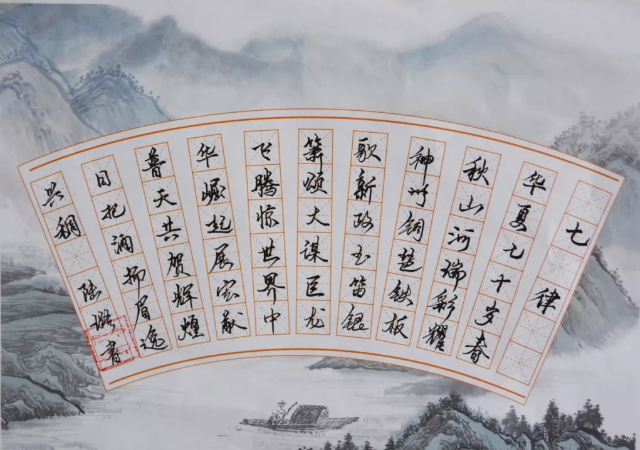 七律
华夏七十岁春
秋山河瑞彩耀
神州铜琵铁板
歌新政玉笛锟
筝颂大谋巨龙
飞腾惊世界中
华崛起展宏猷
普天共贺辉煌
日把酒扬眉逸
兴稠 陆 书